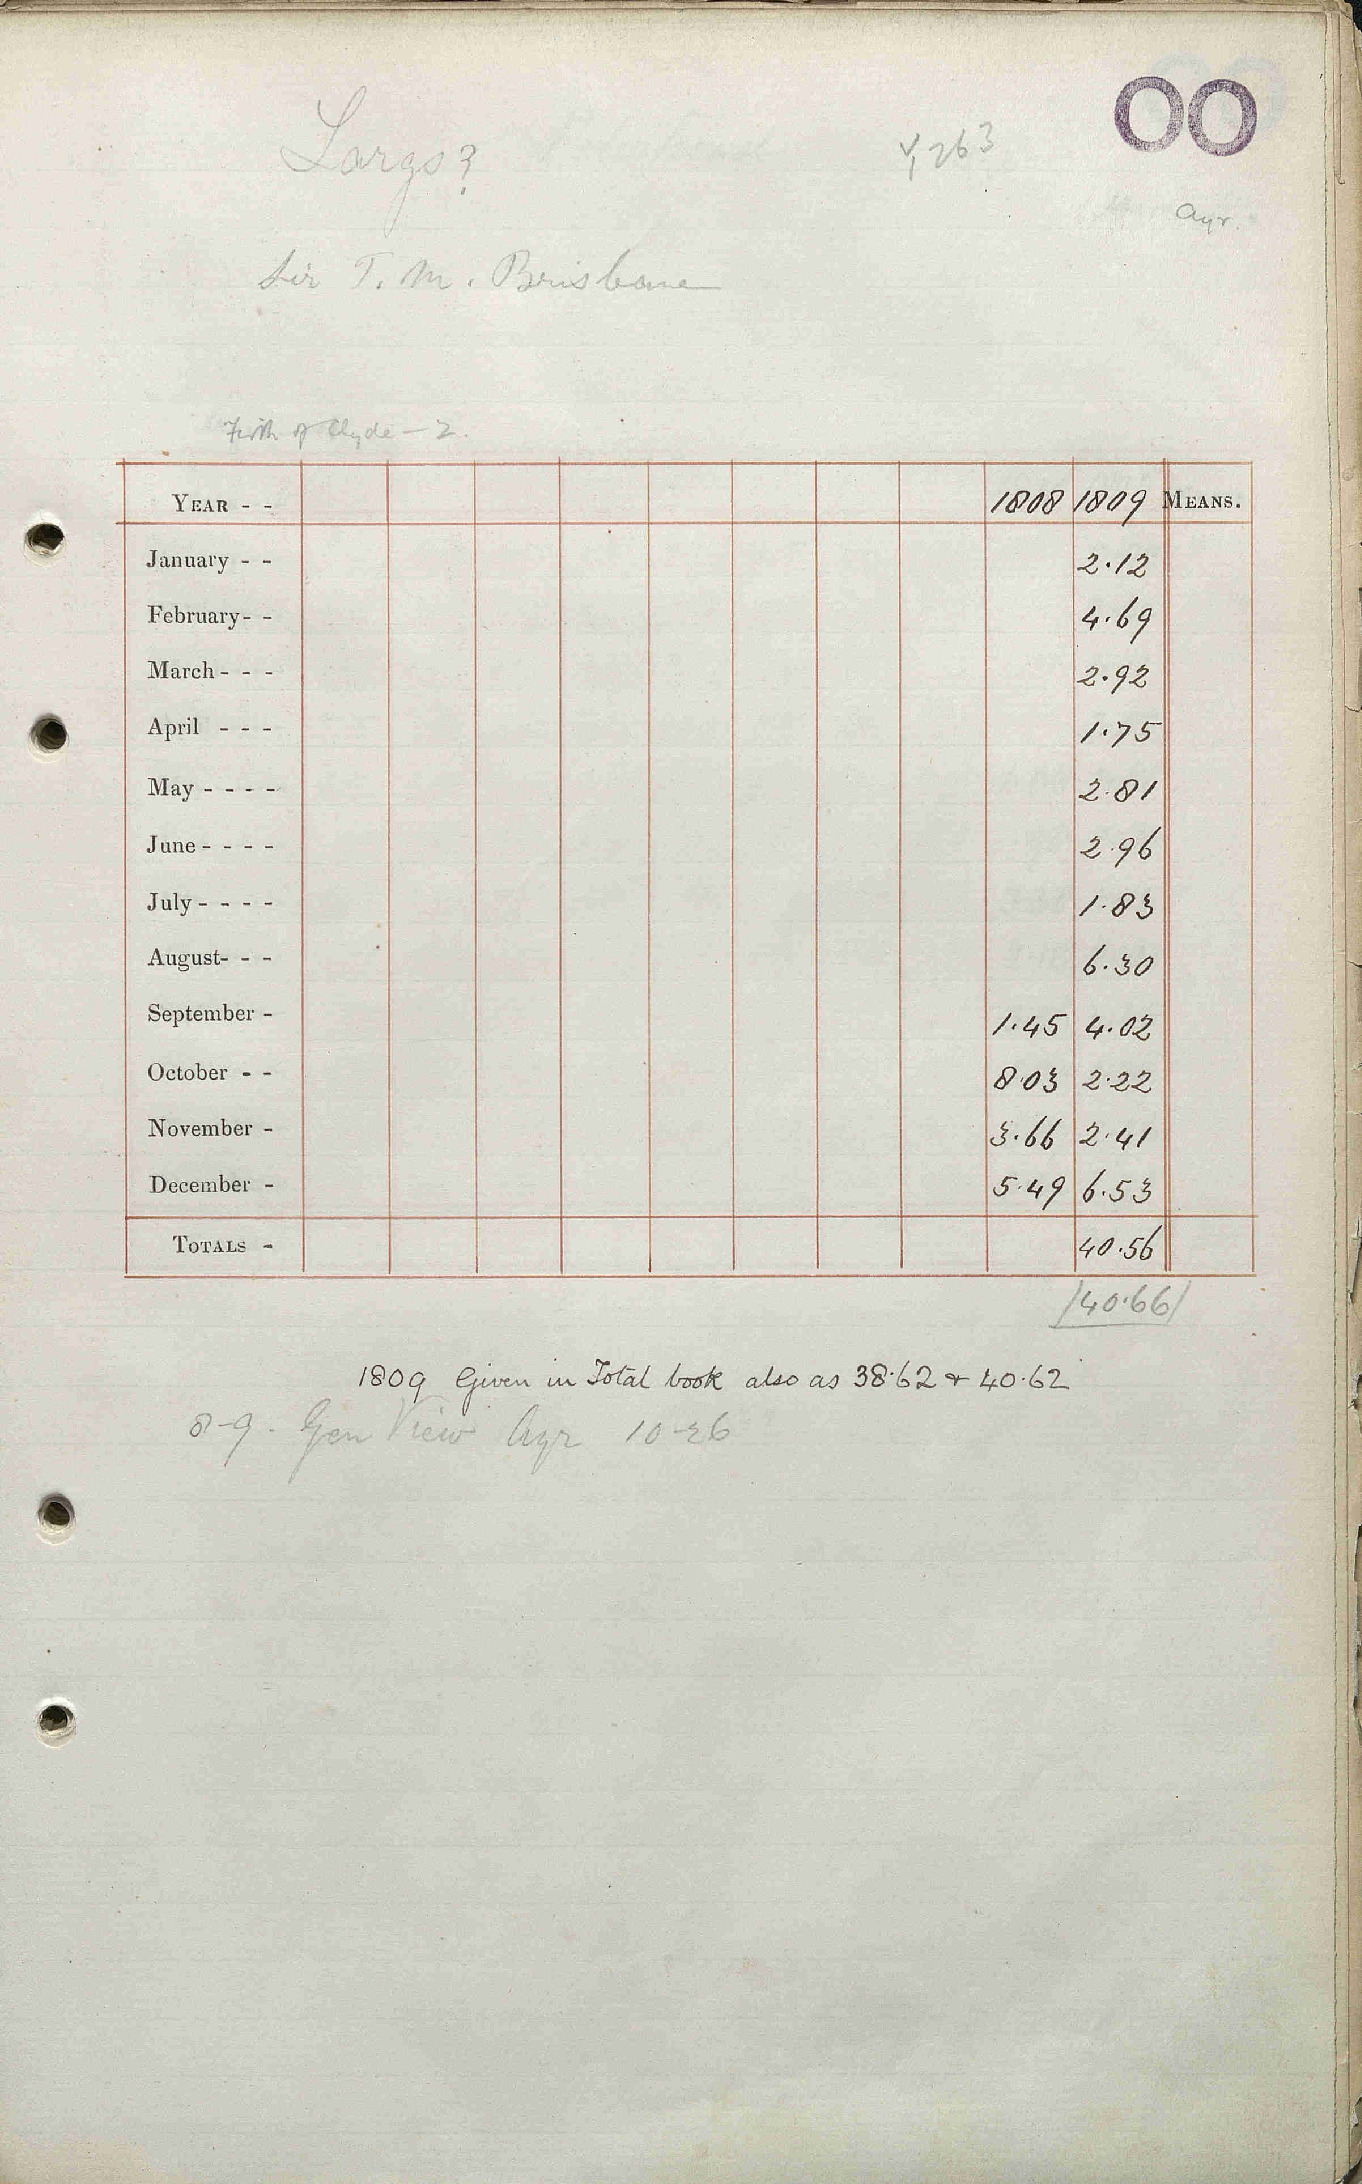 OO
Largs?
Ayr.
Sir T. M. Brisbane
Firth of Clyde - 2.
YEAR - - 1808 1809 MEANS.
January - - 2.12
February- - 4.69
March- - - 2.92
April - - - 1.75
May - - - - 2.81
June- - - - 2.96
July- - - - 1.83
August- - - 6.30
September - 1.45 4.02
October - - 8.03 2.22
November - 3.66 2.41
December - 5.49 6.53
TOTALS - 40.56
/40.66/
1809 Given in Total book also as 38.62 & 40.62
8-9. Gen View Ayr 10-26